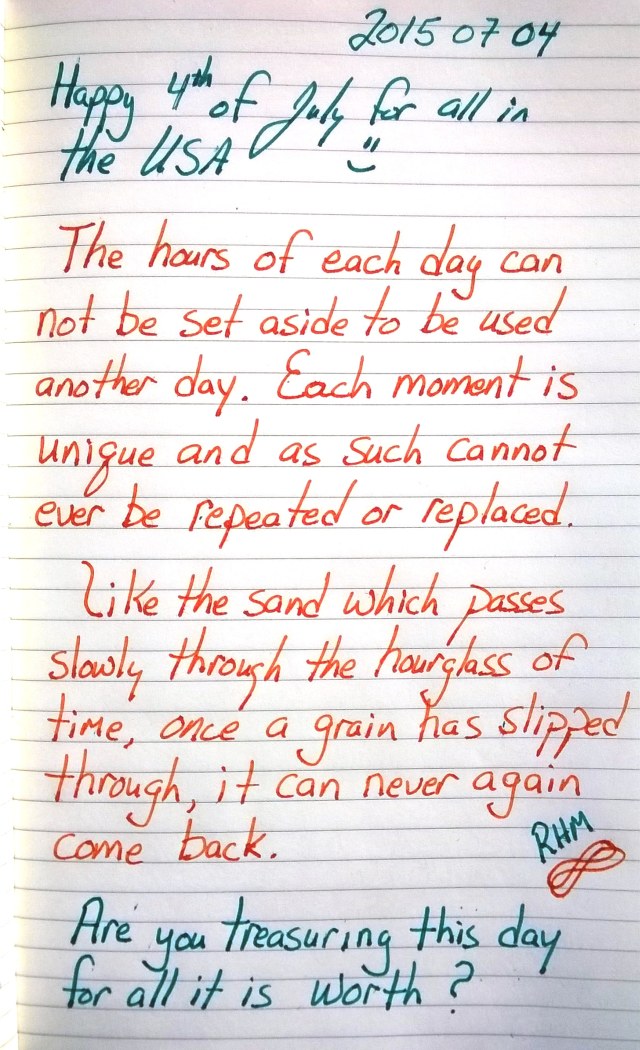 2015 07 04
Happy 4th of July for all in
the USA
The hours of each day can
not be set aside to be used
another day. Each moment is
unique and as such cannot
ever be repeated or replaced.
Like the sand which passes
slowly through the hourglass of
time, once a grain has slipped
through, it can never again
come back.
RHM
Are you treasuring this day
for all it is worth?